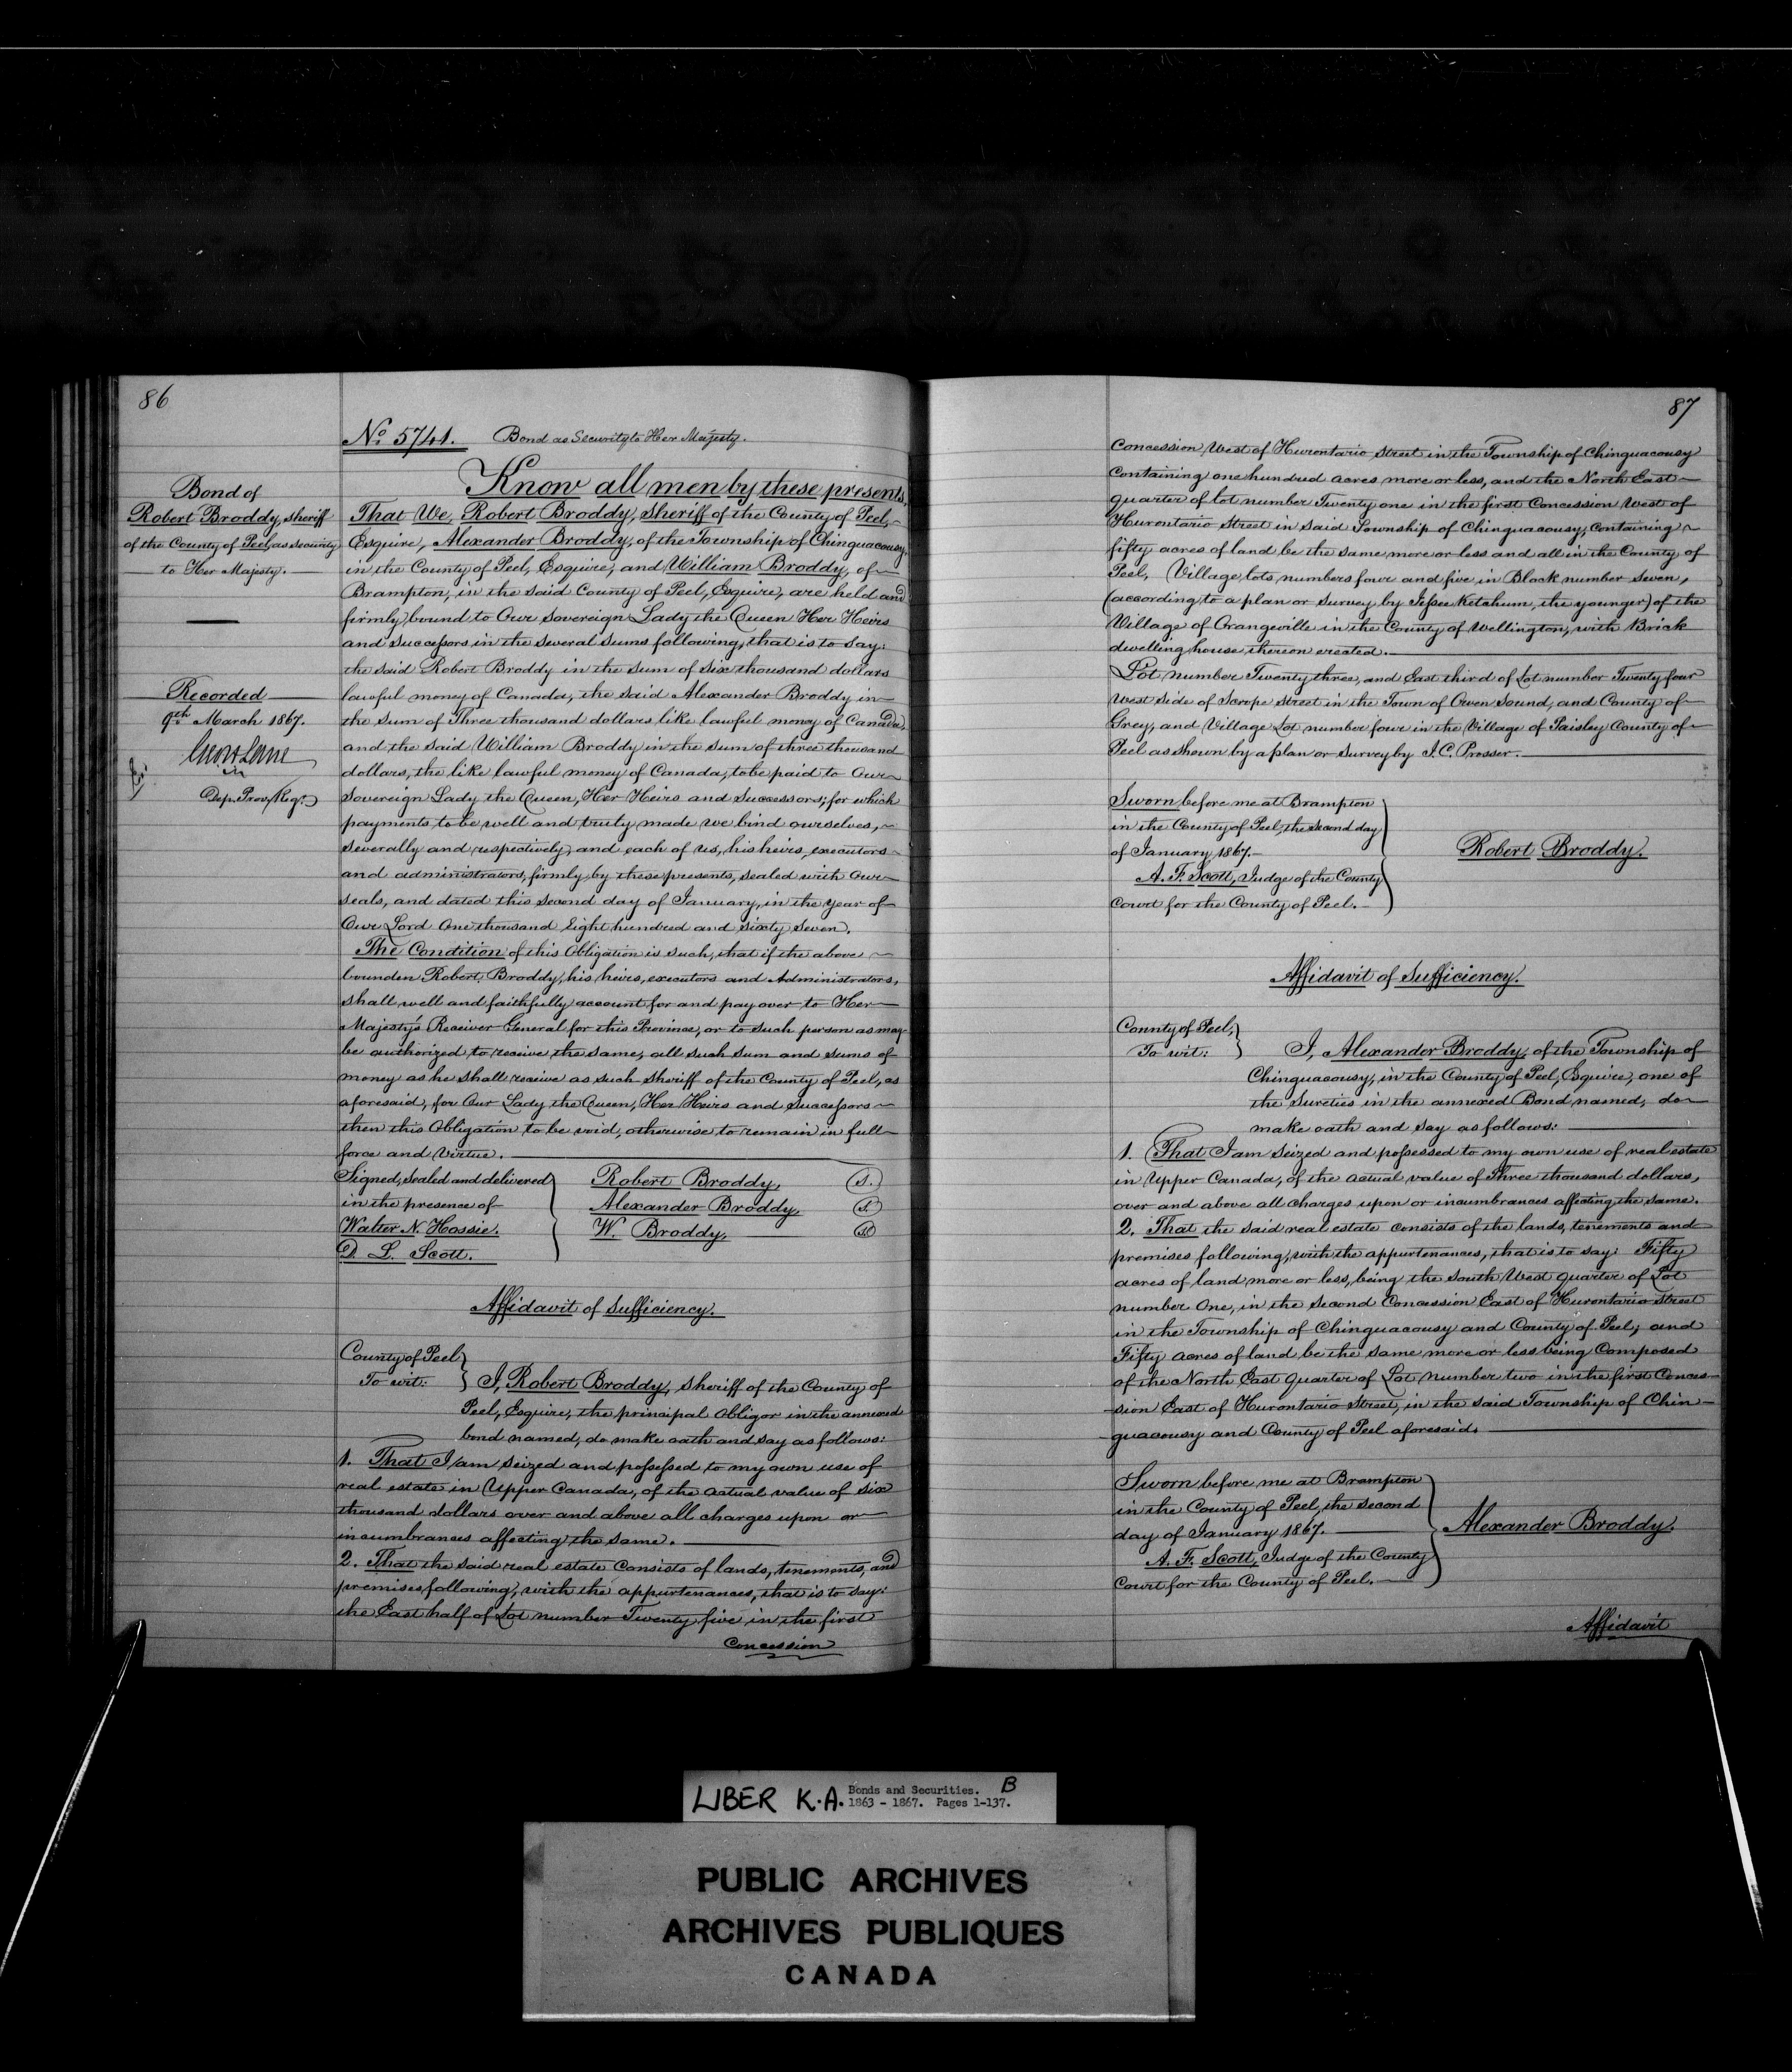 86
No 5741. Bond as Security to Her Majesty.
Bond of
Robert Broddy, Sheriff
of the County of Peel, as security
to Her Majesty.
Recorded
9th March 1867.
Dep. Prov. Regr.
Know all men by these presents,
That We, Robert Broddy, Sheriff of the County of Peel,
Esquire, Alexander Broddy, of the Township of Chinguacousy,
in the County of Peel, Esquire, and William Broddy, of
Brampton, in the said County of Peel, Esquire, are held and
firmly bound to Our Sovereign Lady the Queen Her Heirs
and Successors in the several sums following, that is to say:
the said Robert Broddy in the sum of six thousand dollars
lawful money of Canada, the said Alexander Broddy in
the sum of Three thousand dollars like lawful money of Canada,
and the said William Broddy in the sum of three thousand
dollars, the like lawful money of Canada, to be paid to Our
Sovereign Lady the Queen, Her Heirs and Successors; for which
payments to be well and truly made we bind ourselves,
severally and respectively, and each of us, his heirs, executors
and administrators, firmly by these presents, sealed with our
seals, and dated this second day of January, in the year of
Our Lord One thousand Eight hundred and sixty seven.
The Condition of this Obligation is such, that if the above
bounden Robert Broddy, his heirs, executors and Administrators,
shall well and faithfully account for and pay over to Her
Majesty's Receiver General for this Province, or to such person as may
be authorized to receive the same, all such sum and sums of
money as he shall receive as such Sheriff of the County of Peel, as
aforesaid, for Our Lady the Queen, Her Heirs and Successors
then this Obligation to be void, otherwise to remain in full
force and virtue.
Signed, sealed and delivered
in the presence of
Walter N. Hossie.
D. L. Scott.
Robert Broddy, S.
Alexander Broddy, S.
W. Broddy, S.
Affidavit of Sufficiency.
County of Peel
To wit: I, Robert Broddy, Sheriff of the County of
Peel, Esquire, the principal Obligor in the annexed
bond named, do make oath and say as follows:
1. That I am seized and possessed to my own use of
real estate in Upper Canada, of the actual value of six
thousand dollars over and above all charges upon or
incumbrances affecting the same.
2. That the said real estate consists of lands, tenements, and
premises following, with the appurtenances, that is to say:
the East half of Lot number Twenty five in the first
Concession
87
Concession West of Hurontario Street in the Township of Chinguacousy
containing one hundred acres more or less, and the North East
quarter of lot number Twenty one in the first Concession West of
Hurontario Street in said Township of Chinguacousy, containing
fifty acres of land be the same more or less and all in the County of
Peel, Village lots numbers four and five in Block number Seven,
(according to a plan or survey by Jesse Ketchum, the younger) of the
Village of Orangeville in the County of Wellington, with Brick
dwelling house thereon erected.
Lot number Twenty three, and East third of Lot number Twenty four
West side of Scrope Street in the Town of Owen Sound, and County of
Grey, and Village Lot number four in the Village of Paisley County of
Peel as shown by a plan or survey by J. C. Prosser.
Sworn before me at Brampton
in the County of Peel, the second day
of January 1867.
A. F. Scott, Judge of the County
Court for the County of Peel.
Robert Broddy.
Affidavit of Sufficiency.
County of Peel,
To wit: I, Alexander Broddy, of the Township of
Chinguacousy, in the County of Peel, Esquire, one of
the Sureties in the annexed Bond named, do
make oath and say as follows:
1. That I am seized and possessed to my own use of real estate
in Upper Canada, of the actual value of Three thousand dollars,
over and above all charges upon or incumbrances affecting the same.
2. That the said real estate consists of the lands, tenements and
premises following, with the appurtenances, that is to say: Fifty
acres of land more or less, being the South West quarter of Lot
number One, in the second Concession East of Hurontario Street
in the Township of Chinguacousy and County of Peel; and
Fifty acres of land be the same more or less being Composed
of the North East quarter of Lot number two in the first Conces-
-sion East of Hurontario Street, in the said Township of Chin-
-guacousy and County of Peel aforesaid.
Sworn before me at Brampton
in the County of Peel, the second
day of January 1867.
A. F. Scott, Judge of the County
Court for the County of Peel.
Alexander Broddy.
Affidavit
LIBER K.A. Bonds and Securities. B
1863 - 1867. Pages 1-137.
PUBLIC ARCHIVES
ARCHIVES PUBLIQUES
CANADA